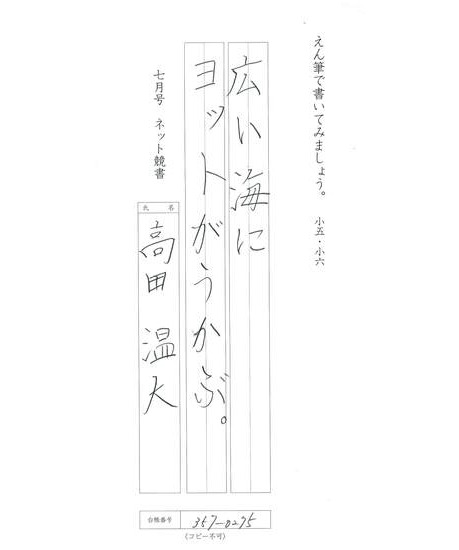 えん筆で書いてみましょう。　小五・小六
広い海に
ヨットがうかぶ。
七月号　ネット競書
氏名
高田温大
台帳番号
357-0275
(コピー不可)